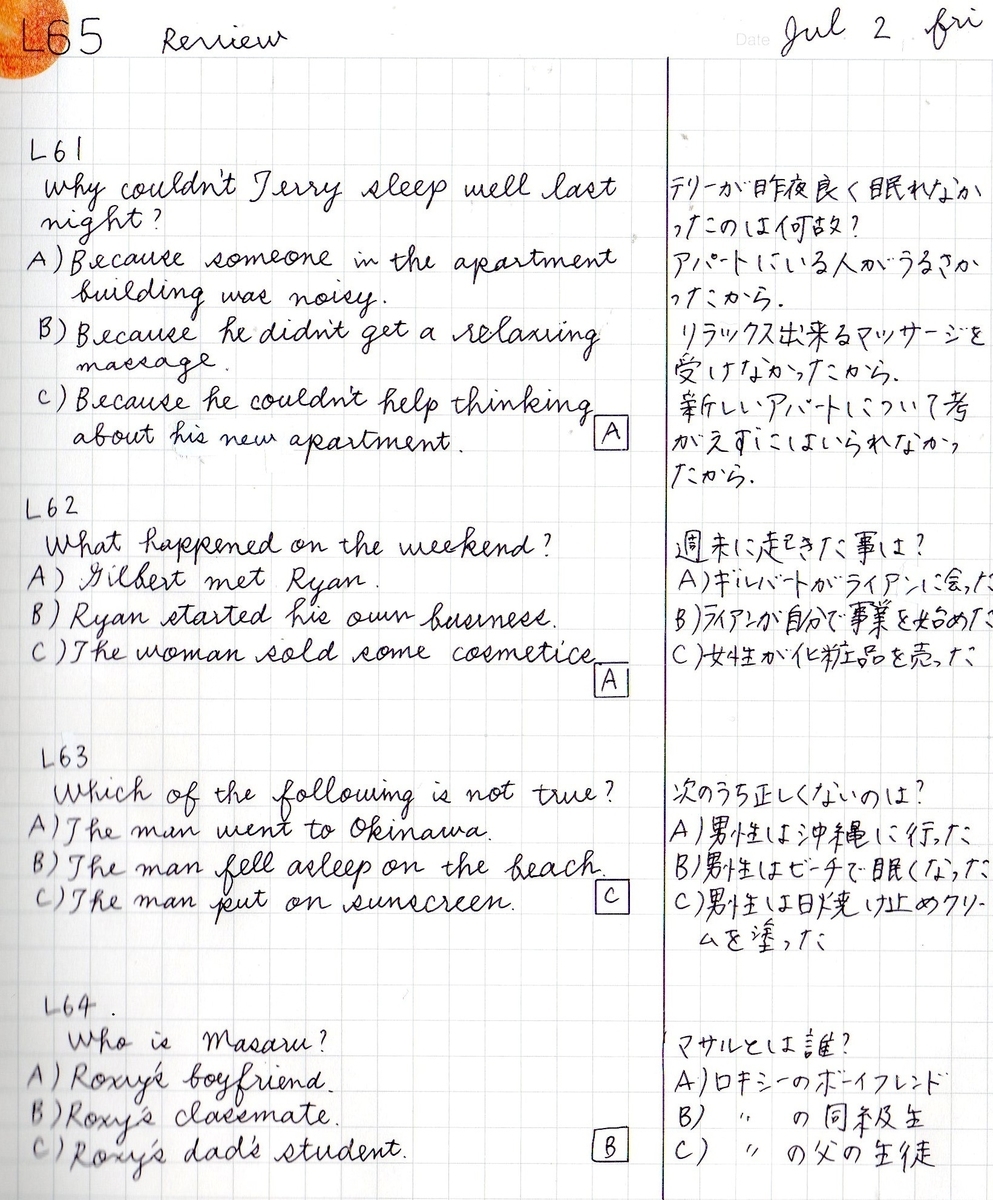 L65 Review Date Jul 2 fri
L61
Why couldn't Terry sleep well last
night?
A) Because someone in the apartment
building was noisy.
B) Because he didn't get a relaxing
massage.
C) Because he couldn't help thinking
about his new apartment.
A
テリーが昨夜良く眠れなか
ったのは何故?
アパートにいる人がうるさか
ったから.
リラックス出来るマッサージを
受けなかったから.
新しいアパートについて考
がえずにはいられなかっ
たから.
L62
What happened on the weekend?
A) Gilbert met Ryan.
B) Ryan started his own business.
C) The woman sold some cosmetics.
A
週末に起きた事は?
A)ギルバートがライアンに会った
B)ライアンが自分で事業を始めた
C)女性が化粧品を売った
L63
Which of the following is not true?
A) The man went to Okinawa.
B) The man fell asleep on the beach.
C) The man put on sunscreen.
C
次のうち正しくないのは?
A)男性は沖縄に行った
B)男性はビーチで眠くなった
C)男性は日焼け止めクリー
ムを塗った
L64.
Who is Masaru?
A) Roxy's boyfriend.
B) Roxy's classmate.
C) Roxy's dad's student.
B
マサルとは誰?
A)ロキシーのボーイフレンド
B) 〃 の同級生
C) 〃 の父の生徒